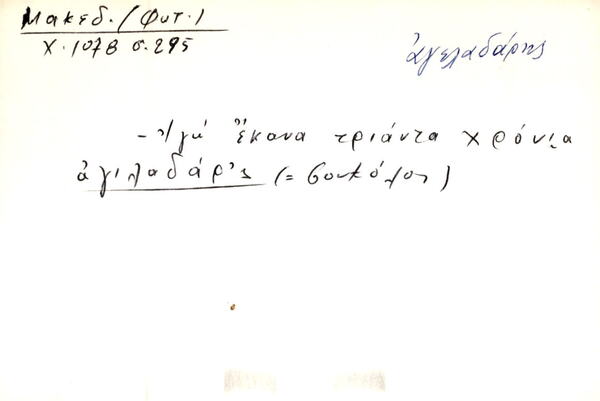 Μακεδ. (Φυτ.)
Χ. 1078 σ. 295
ἀγελαδάρης
- Ἰγώ ἔκανα τριάντα χρόνια
ἀγιλαδάρ'ς (= βουκόλος)